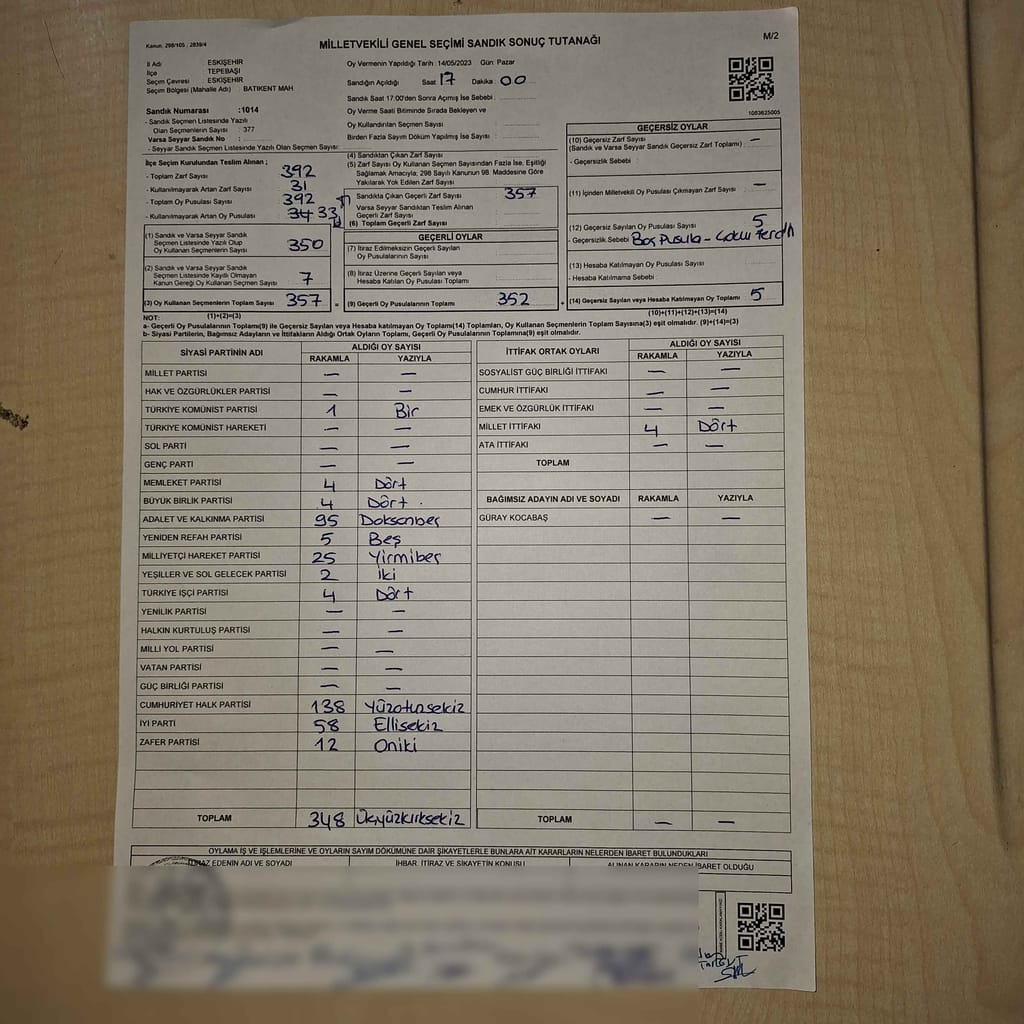 Kanun: 298/105 ; 2839/4
MİLLETVEKİLİ GENEL SEÇİMİ SANDIK SONUÇ TUTANAĞI
M/2
İl Adı ESKİŞEHİR
İlçe TEPEBAŞI
Seçim Çevresi ESKİŞEHİR
Seçim Bölgesi (Mahalle Adı) BATIKENT MAH
Oy Vermenin Yapıldığı Tarih : 14/05/2023 Gün: Pazar
Sandığın Açıldığı Saat 17 Dakika 00
Sandık Saat 17.00'den Sonra Açılmış İse Sebebi :
Oy Verme Saati Bitiminde Sırada Bekleyen ve
Oy Kullandırılan Seçmen Sayısı
Birden Fazla Sayım Döküm Yapılmış İse Sayısı :
1083625005
Sandık Numarası :1014
- Sandık Seçmen Listesinde Yazılı
Olan Seçmenlerin Sayısı : 377
Varsa Seyyar Sandık No :
- Seyyar Sandık Seçmen Listesinde Yazılı Olan Seçmen Sayısı:
İlçe Seçim Kurulundan Teslim Alınan ;
- Toplam Zarf Sayısı : 392
- Kullanılmayarak Artan Zarf Sayısı : 31
- Toplam Oy Pusulası Sayısı : 392
- Kullanılmayarak Artan Oy Pusulası : 34 33
(1) Sandık ve Varsa Seyyar Sandık
Seçmen Listesinde Yazılı Olup
Oy Kullanan Seçmenlerin Sayısı 350
(2) Sandık ve Varsa Seyyar Sandık
Seçmen Listesinde Kayıtlı Olmayan
Kanun Gereği Oy Kullanan Seçmen Sayısı 7
(3) Oy Kullanan Seçmenlerin Toplam Sayısı 357 =
(1)+(2)=(3)
(4) Sandıktan Çıkan Zarf Sayısı
(5) Zarf Sayısı Oy Kullanan Seçmen Sayısından Fazla İse, Eşitliği
Sağlamak Amacıyla; 298 Sayılı Kanunun 98. Maddesine Göre
Yakılarak Yok Edilen Zarf Sayısı
Sandıkta Çıkan Geçerli Zarf Sayısı 357
Varsa Seyyar Sandıktan Teslim Alınan
Geçerli Zarf Sayısı
(6) Toplam Geçerli Zarf Sayısı
GEÇERLİ OYLAR
(7) İtiraz Edilmeksizin Geçerli Sayılan
Oy Pusulalarının Sayısı
(8) İtiraz Üzerine Geçerli Sayılan veya
Hesaba Katılan Oy Pusulası Toplamı
(9) Geçerli Oy Pusulalarının Toplamı 352 +
GEÇERSİZ OYLAR
(10) Geçersiz Zarf Sayısı —
(Sandık ve Varsa Seyyar Sandık Geçersiz Zarf Toplamı) :
- Geçersizlik Sebebi
(11) İçinden Milletvekili Oy Pusulası Çıkmayan Zarf Sayısı —
(12) Geçersiz Sayılan Oy Pusulası Sayısı 5
- Geçersizlik Sebebi Boş Pusula -
(13) Hesaba Katılmayan Oy Pusulası Sayısı
- Hesaba Katılmama Sebebi
(14) Geçersiz Sayılan veya Hesaba Katılmayan Oy Toplamı 5
(10)+(11)+(12)+(13)=(14)
NOT:
a- Geçerli Oy Pusulalarının Toplamı(9) ile Geçersiz Sayılan veya Hesaba katılmayan Oy Toplamı(14) Toplamları, Oy Kullanan Seçmenlerin Toplam Sayısına(3) eşit olmalıdır. (9)+(14)=(3)
b- Siyasi Partilerin, Bağımsız Adayların ve İttifakların Aldığı Ortak Oyların Toplamı, Geçerli Oy Pusulalarının Toplamına(9) eşit olmalıdır.
SİYASİ PARTİNİN ADI ALDIĞI OY SAYISI
RAKAMLA YAZIYLA
MİLLET PARTİSİ — —
HAK VE ÖZGÜRLÜKLER PARTİSİ — —
TÜRKİYE KOMÜNİST PARTİSİ 1 Bir
TÜRKİYE KOMÜNİST HAREKETİ — —
SOL PARTİ — —
GENÇ PARTİ — —
MEMLEKET PARTİSİ 4 Dört
BÜYÜK BİRLİK PARTİSİ 4 Dört
ADALET VE KALKINMA PARTİSİ 95 Doksanbeş
YENİDEN REFAH PARTİSİ 5 Beş
MİLLİYETÇİ HAREKET PARTİSİ 25 Yirmibeş
YEŞİLLER VE SOL GELECEK PARTİSİ 2 İki
TÜRKİYE İŞÇİ PARTİSİ 4 Dört
YENİLİK PARTİSİ — —
HALKIN KURTULUŞ PARTİSİ — —
MİLLİ YOL PARTİSİ — —
VATAN PARTİSİ — —
GÜÇ BİRLİĞİ PARTİSİ — —
CUMHURİYET HALK PARTİSİ 138 Yüzotuzsekiz
İYİ PARTİ 58 Ellisekiz
ZAFER PARTİSİ 12 Oniki
TOPLAM 348 Üçyüzkırksekiz
İTTİFAK ORTAK OYLARI ALDIĞI OY SAYISI
RAKAMLA YAZIYLA
SOSYALİST GÜÇ BİRLİĞİ İTTİFAKI — —
CUMHUR İTTİFAKI — —
EMEK VE ÖZGÜRLÜK İTTİFAKI — —
MİLLET İTTİFAKI 4 Dört
ATA İTTİFAKI — —
TOPLAM
BAĞIMSIZ ADAYIN ADI VE SOYADI RAKAMLA YAZIYLA
GÜRAY KOCABAŞ — —
TOPLAM — —
OYLAMA İŞ VE İŞLEMLERİNE VE OYLARIN SAYIM DÖKÜMÜNE DAİR ŞİKAYETLERLE BUNLARA AİT KARARLARIN NELERDEN İBARET BULUNDUKLARI
İTİRAZ EDENİN ADI VE SOYADI İHBAR, İTİRAZ VE ŞİKAYETİN KONUSU ALINAN KARARIN NEDEN İBARET OLDUĞU